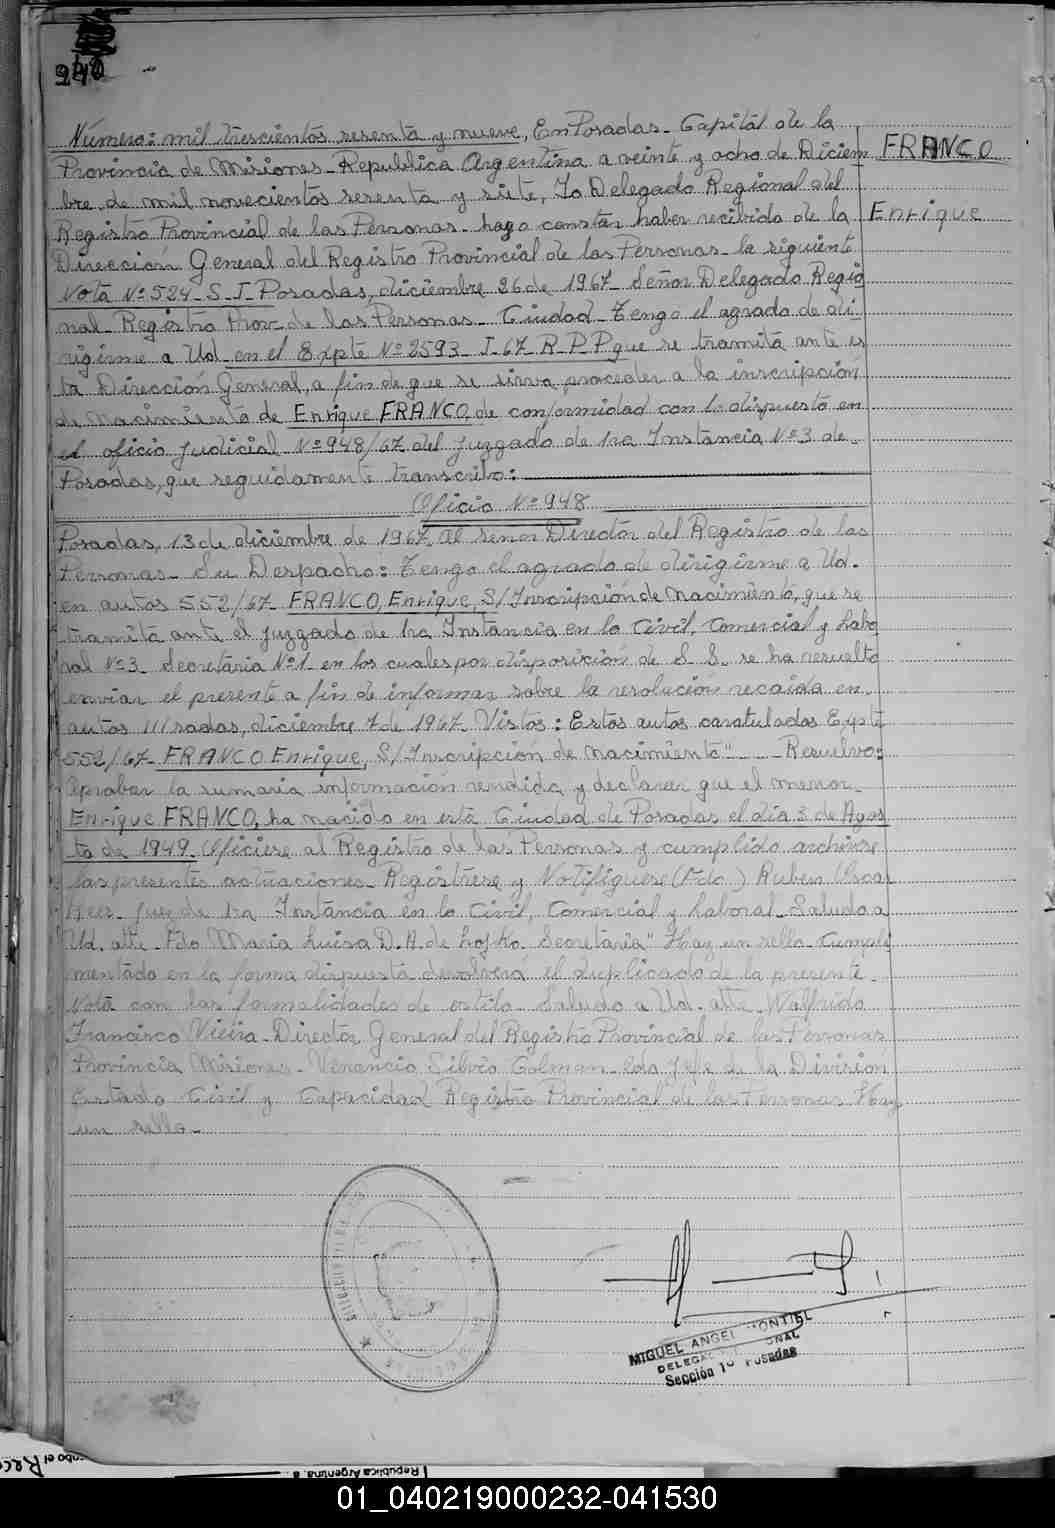 240
Número: mil trescientos sesenta y nueve, En Posadas - Capital de la
FRANCO
Provincia de Misiones - Republica Argentina a veinte y ocho de Diciem
bre, de mil novecientos sesenta y siete, Yo Delegado Regional del
Enrique
Registro Provincial de las Personas - hago constar haber recibido de la
Dirección General del Registro Provincial de las Personas - la siguiente
Nota Nº 524 - S - I - Posadas, diciembre 26 de 1967 - Señor Delegado Regio
nal - Registro Prov - de las Personas - Ciudad - Tengo el agrado de di
rigirme a Ud - en el Expte Nº 2593 - I - 67 - R - P - P que se tramita ante es
ta Dirección General, a fin de que se sirva proceder a la inscripción
de nacimiento de Enrique FRANCO, de conformidad con lo dispuesto en
el oficio Judicial Nº 948/67 del Juzgado de 1ra Instancia Nº 3 de
Posadas, que seguidamente transcribo:
Oficio Nº 948
Posadas, 13 de diciembre de 1967 Al señor Director del Registro de las
Personas - Su Despacho: Tengo el agrado de dirigirme a Ud.
en autos 552/67 - FRANCO, Enrique, S/ Inscripción de Nacimiento, que se
tramita ante el Juzgado de 1ra Instancia en lo Civil, Comercial y Labo
ral Nº 3 - Secretaria Nº 1 - en los cuales por disposición de S. S. se ha resuelto
enviar el presente a fin de informar sobre la resolución recaida en
autos ///sadas, diciembre 7 de 1967 - Vistos: Estos autos caratulados Expte
552/67 - FRANCO Enrique, S/ Inscripción de nacimiento" - Resuelvo:
Aprobar la sumaria información rendida y declarar que el menor
Enrique FRANCO, ha nacido en esta Ciudad de Posadas el dia 3 de Agos
to de 1949 - Oficiese al Registro de las Personas y cumplido archivese
las presentes actuaciones - Registrese y Notifiquese (Fdo.) Ruben Oscar
Juez de 1ra Instancia en lo Civil, Comercial y Laboral - Saludo a
Ud. atte - Fdo Maria Luisa D. A. de Lojko. Secretaria" Hay un sello - Cumpli
mentado en la forma dispuesta devolverá el duplicado de la presente
Nota con las formalidades de estilo - Saludo a Ud. atte - Walfrido
Francisco Vieira - Director General del Registro Provincial de las Personas
Provincia Misiones - Venancio Silvio Colman - 2do Jefe de la División
Estado Civil y Capacidad Registro Provincial de las Personas Hay
un sello -
MIGUEL ANGEL MONTIEL
Sección 1ª Posadas
Republica Argentina, a
01_040219000232-041530